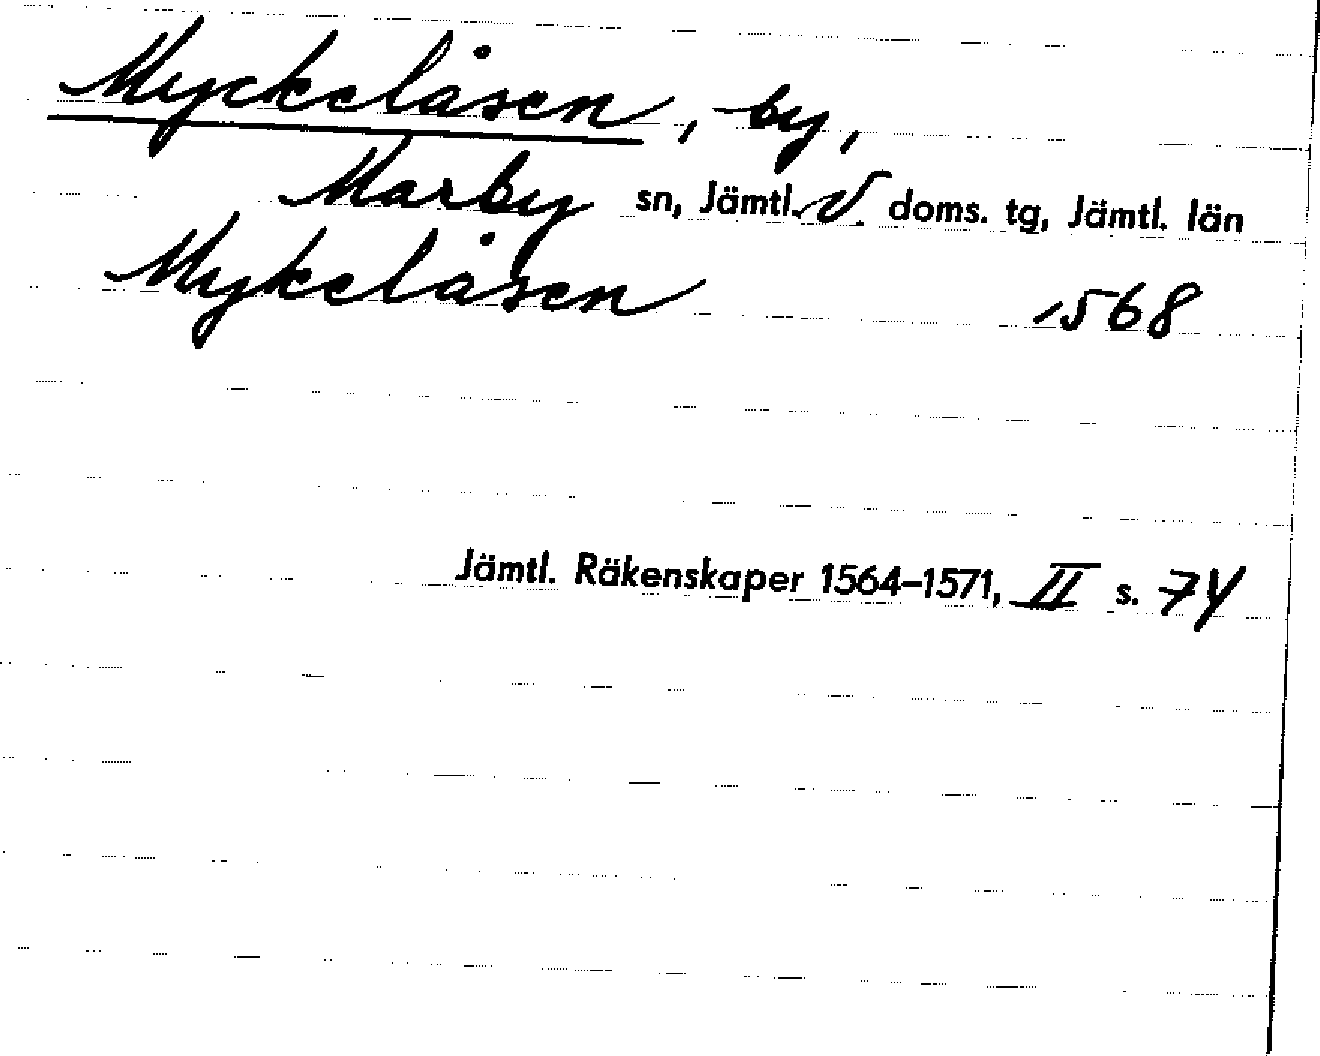 Myckelåsen, by,
Marby sn, Jämtl. V. doms. tg, Jämtl. län
Mykelåsen 1568
Jämtl. Räkenskaper 1564–1571, II s. 74